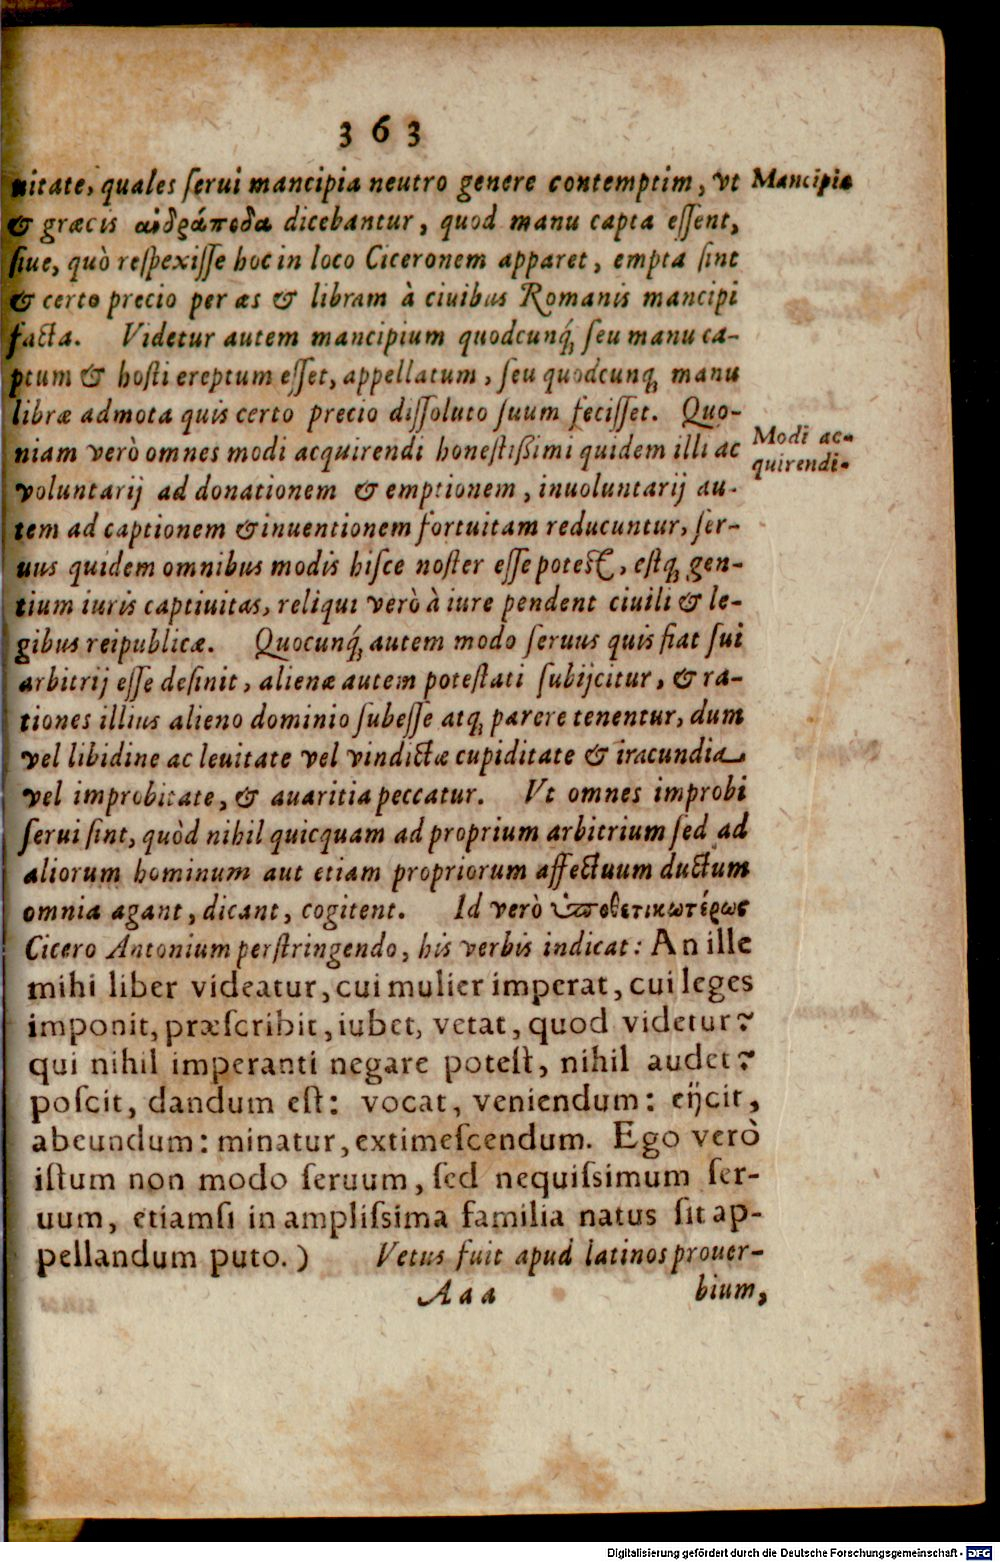 363
uitate, quales ſerui mancipia neutro genere contemptim, vt
Mancipia
& græcis ἀνδράποδα dicebantur, quod manu capta eſſent,
ſiue, quò reſpexiſſe hoc in loco Ciceronem apparet, empta ſint
& certo precio per æs & libram à ciuibus Romanis mancipi
facta. Videtur autem mancipium quodcunq́; ſeu manu ca-
ptum & hoſti ereptum eſſet, appellatum, ſeu quodcunq; manu
libræ admota quis certo precio diſſoluto ſuum feciſſet. Quo-
niam verò omnes modi acquirendi honeſtißimi quidem illi ac
Modi ac-
quirendi.
voluntarij ad donationem & emptionem, inuoluntarij au-
tem ad captionem & inuentionem fortuitam reducuntur, ſer-
uus quidem omnibus modis hiſce noſter eſſe poteſt, eſtq; gen-
tium iuris captiuitas, reliqui verò à iure pendent ciuili & le-
gibus reipublicæ. Quocunq́; autem modo ſeruus quis fiat ſui
arbitrij eſſe deſinit, alienæ autem poteſtati ſubijcitur, & ra-
tiones illius alieno dominio ſubeſſe atq; parere tenentur, dum
vel libidine ac leuitate vel vindictæ cupiditate & iracundia
vel improbitate, & auaritia peccatur. Vt omnes improbi
ſerui ſint, quòd nihil quicquam ad proprium arbitrium ſed ad
aliorum hominum aut etiam propriorum affectuum ductum
omnia agant, dicant, cogitent. Id verò ὑποθετικωτέρως
Cicero Antonium perſtringendo, his verbis indicat: An ille
mihi liber videatur, cui mulier imperat, cui leges
imponit, præſcribit, iubet, vetat, quod videtur?
qui nihil imperanti negare poteſt, nihil audet?
poſcit, dandum eſt: vocat, veniendum: eijcit,
abeundum: minatur, extimeſcendum. Ego verò
iſtum non modo ſeruum, ſed nequiſsimum ſer-
uum, etiamſi in ampliſsima familia natus ſit ap-
pellandum puto.) Vetus fuit apud latinos prouer-
Aaa
bium,
Digitalisierung gefördert durch die Deutsche Forschungsgemeinschaft - DFG